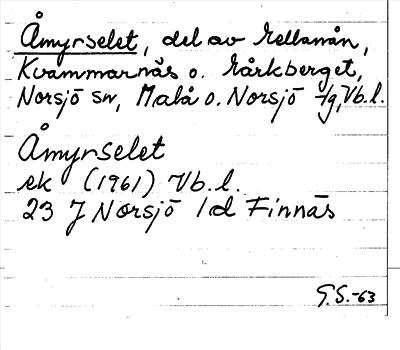 Åmyrselet, del av Mellanån,
Kvammarnäs o. Mårkberget,
Norsjö sn, Malå o. Norsjö tg, Vb.l.
Åmyrselet
ek (1961) Vb.l.
23 J Norsjö 1d Finnäs
G.S.-63